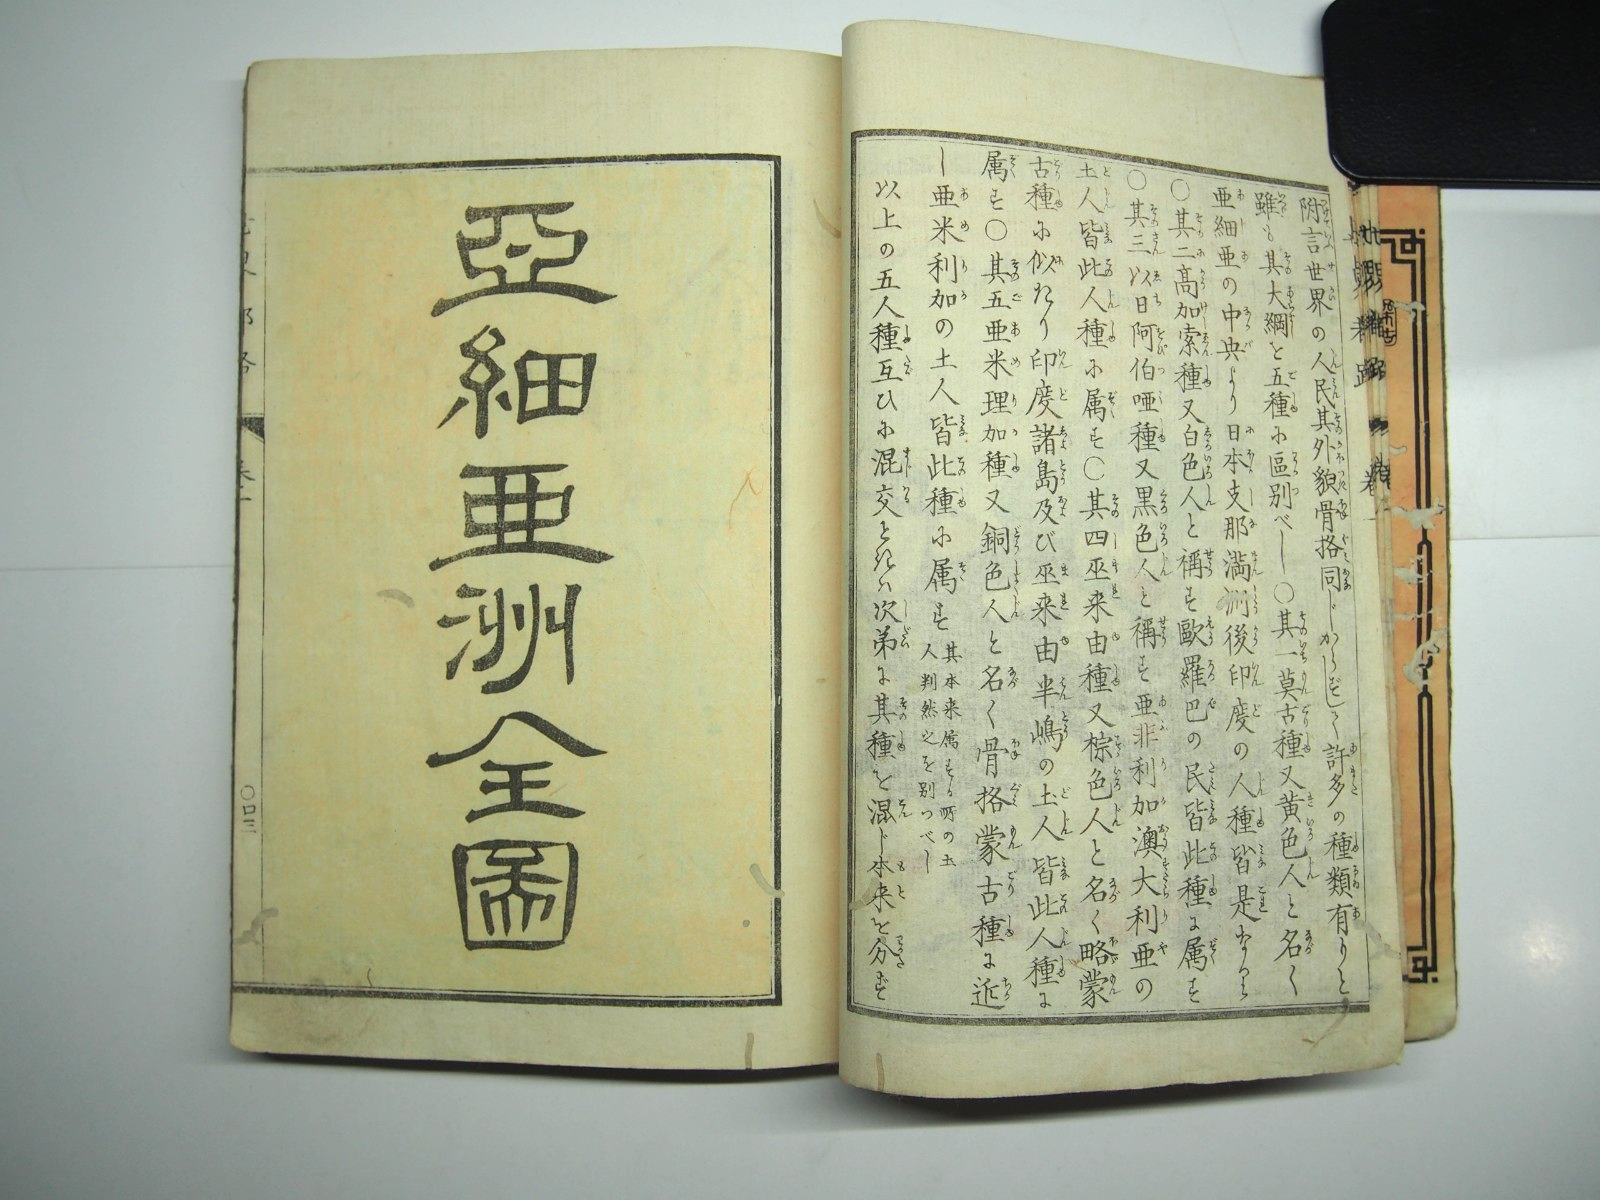 附言世界の人民其外貌骨格同じからずして許多の種類有りと
雖も其大綱を五種に區別べし〇其一莫古種又黄色人と名く
亜細亜の中央より日本支那満洲後印度の人種皆是なり
〇其二高加索種又白色人と稱す歐羅巴の民皆此種に属す
〇其三以日阿伯唖種又黒色人と稱す亜非利加澳大利亜の
土人皆此人種に属す〇其四巫来由種又棕色人と名く略蒙
古種に似たり印度諸島及び巫来由半嶋の土人皆此人種に
属す〇其五亜米理加種又銅色人と名く骨格蒙古種に近
し亜米利加の土人皆此種に属す其本来属する所の土
人判然之を別つべし
以上の五人種互ひに混交ときハ次第に其種を混じ本来を分ず
亞細亜洲全圖
〇口三